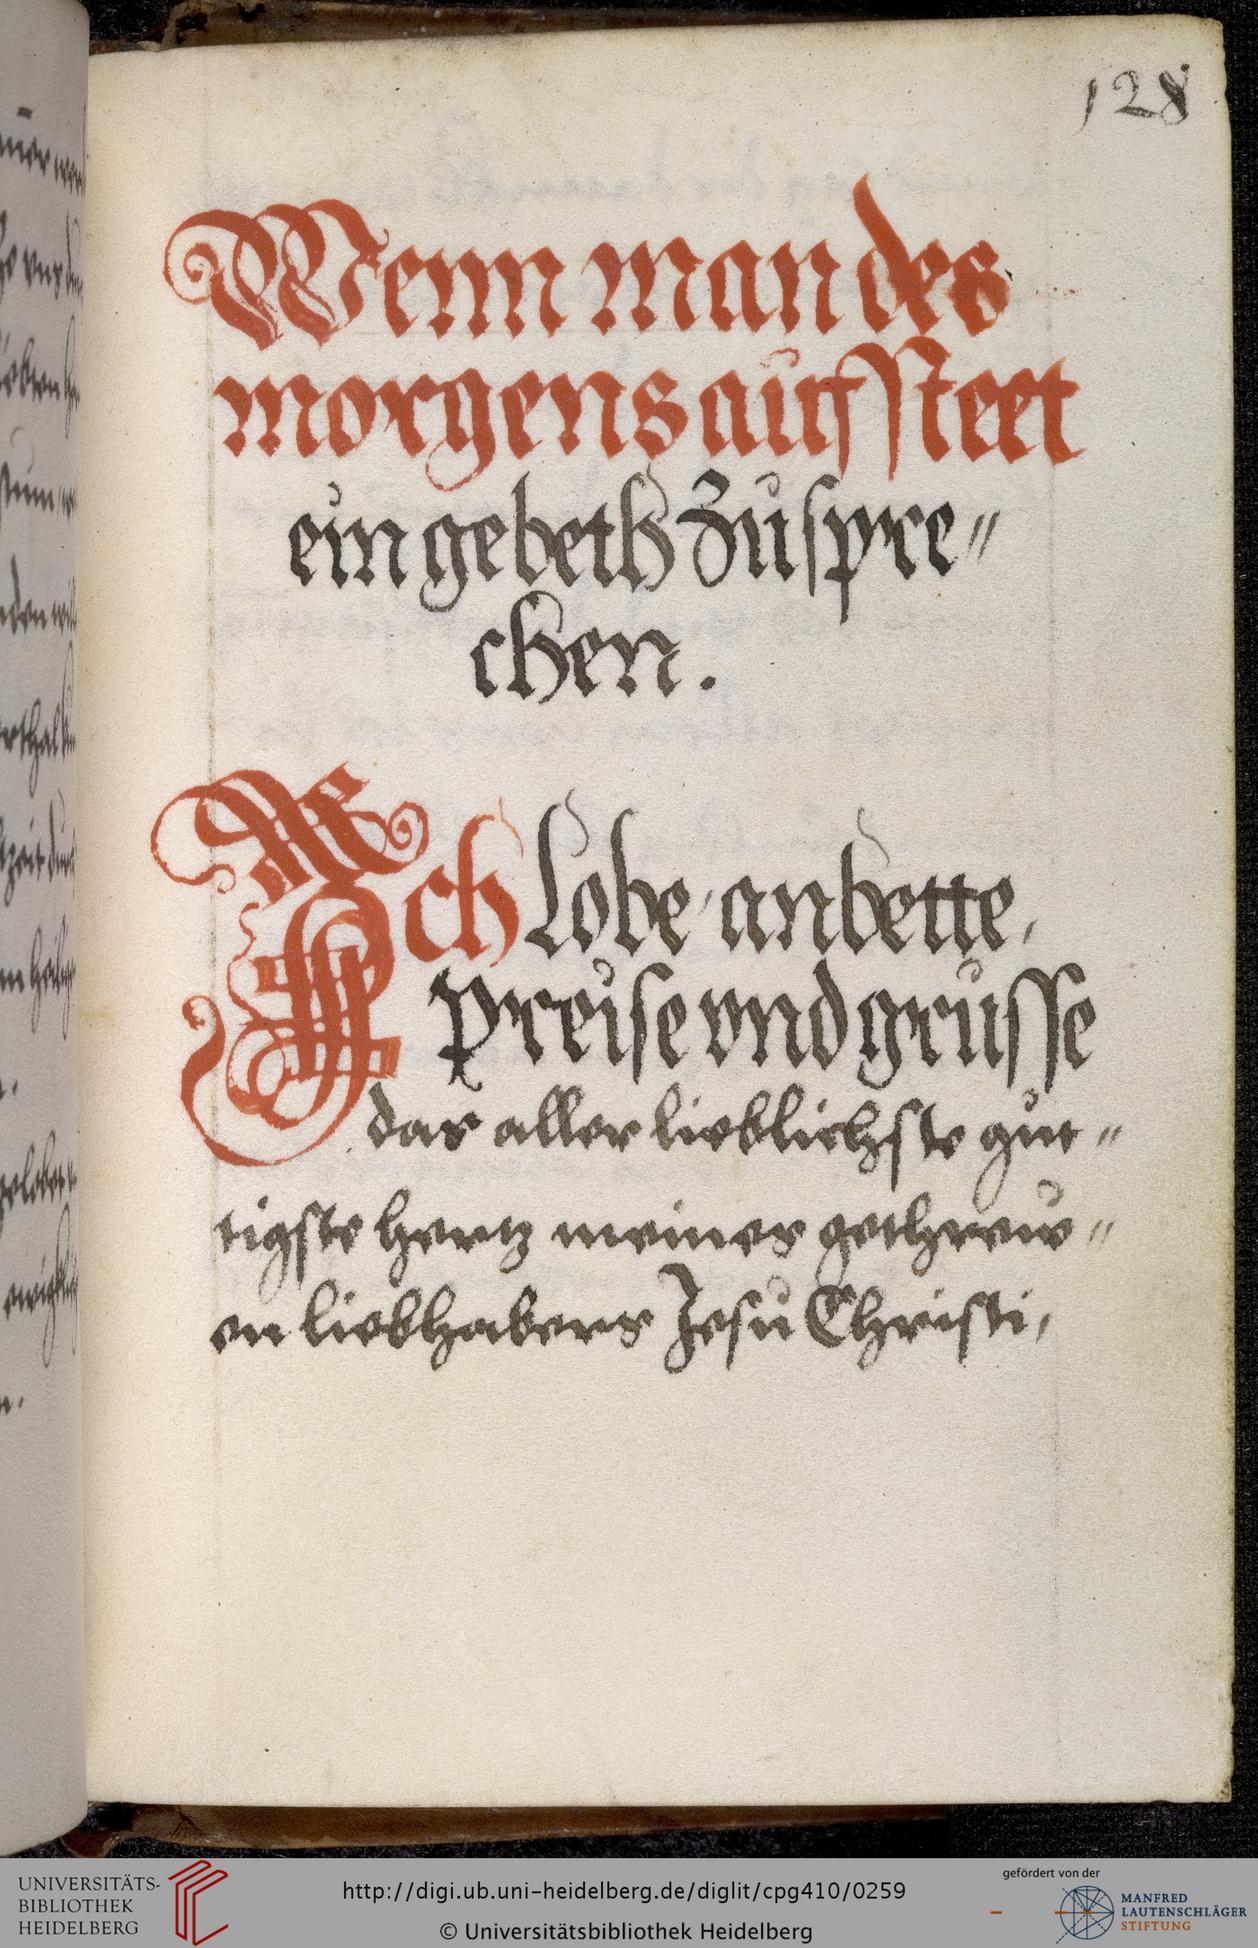 128
Wenn man des
morgens auffsteet
ein gebeth zu spre⸗
chen.
Ich lobe, anbette,
preise vnd grusse
das aller lieblichste gut⸗
tigste hertz meines gethrew⸗
en liebhabers Jesu Christi,
UNIVERSITÄTS-
BIBLIOTHEK
HEIDELBERG
http://digi.ub.uni-heidelberg.de/diglit/cpg410/0259
© Universitätsbibliothek Heidelberg
gefördert von der
MANFRED
LAUTENSCHLÄGER
STIFTUNG